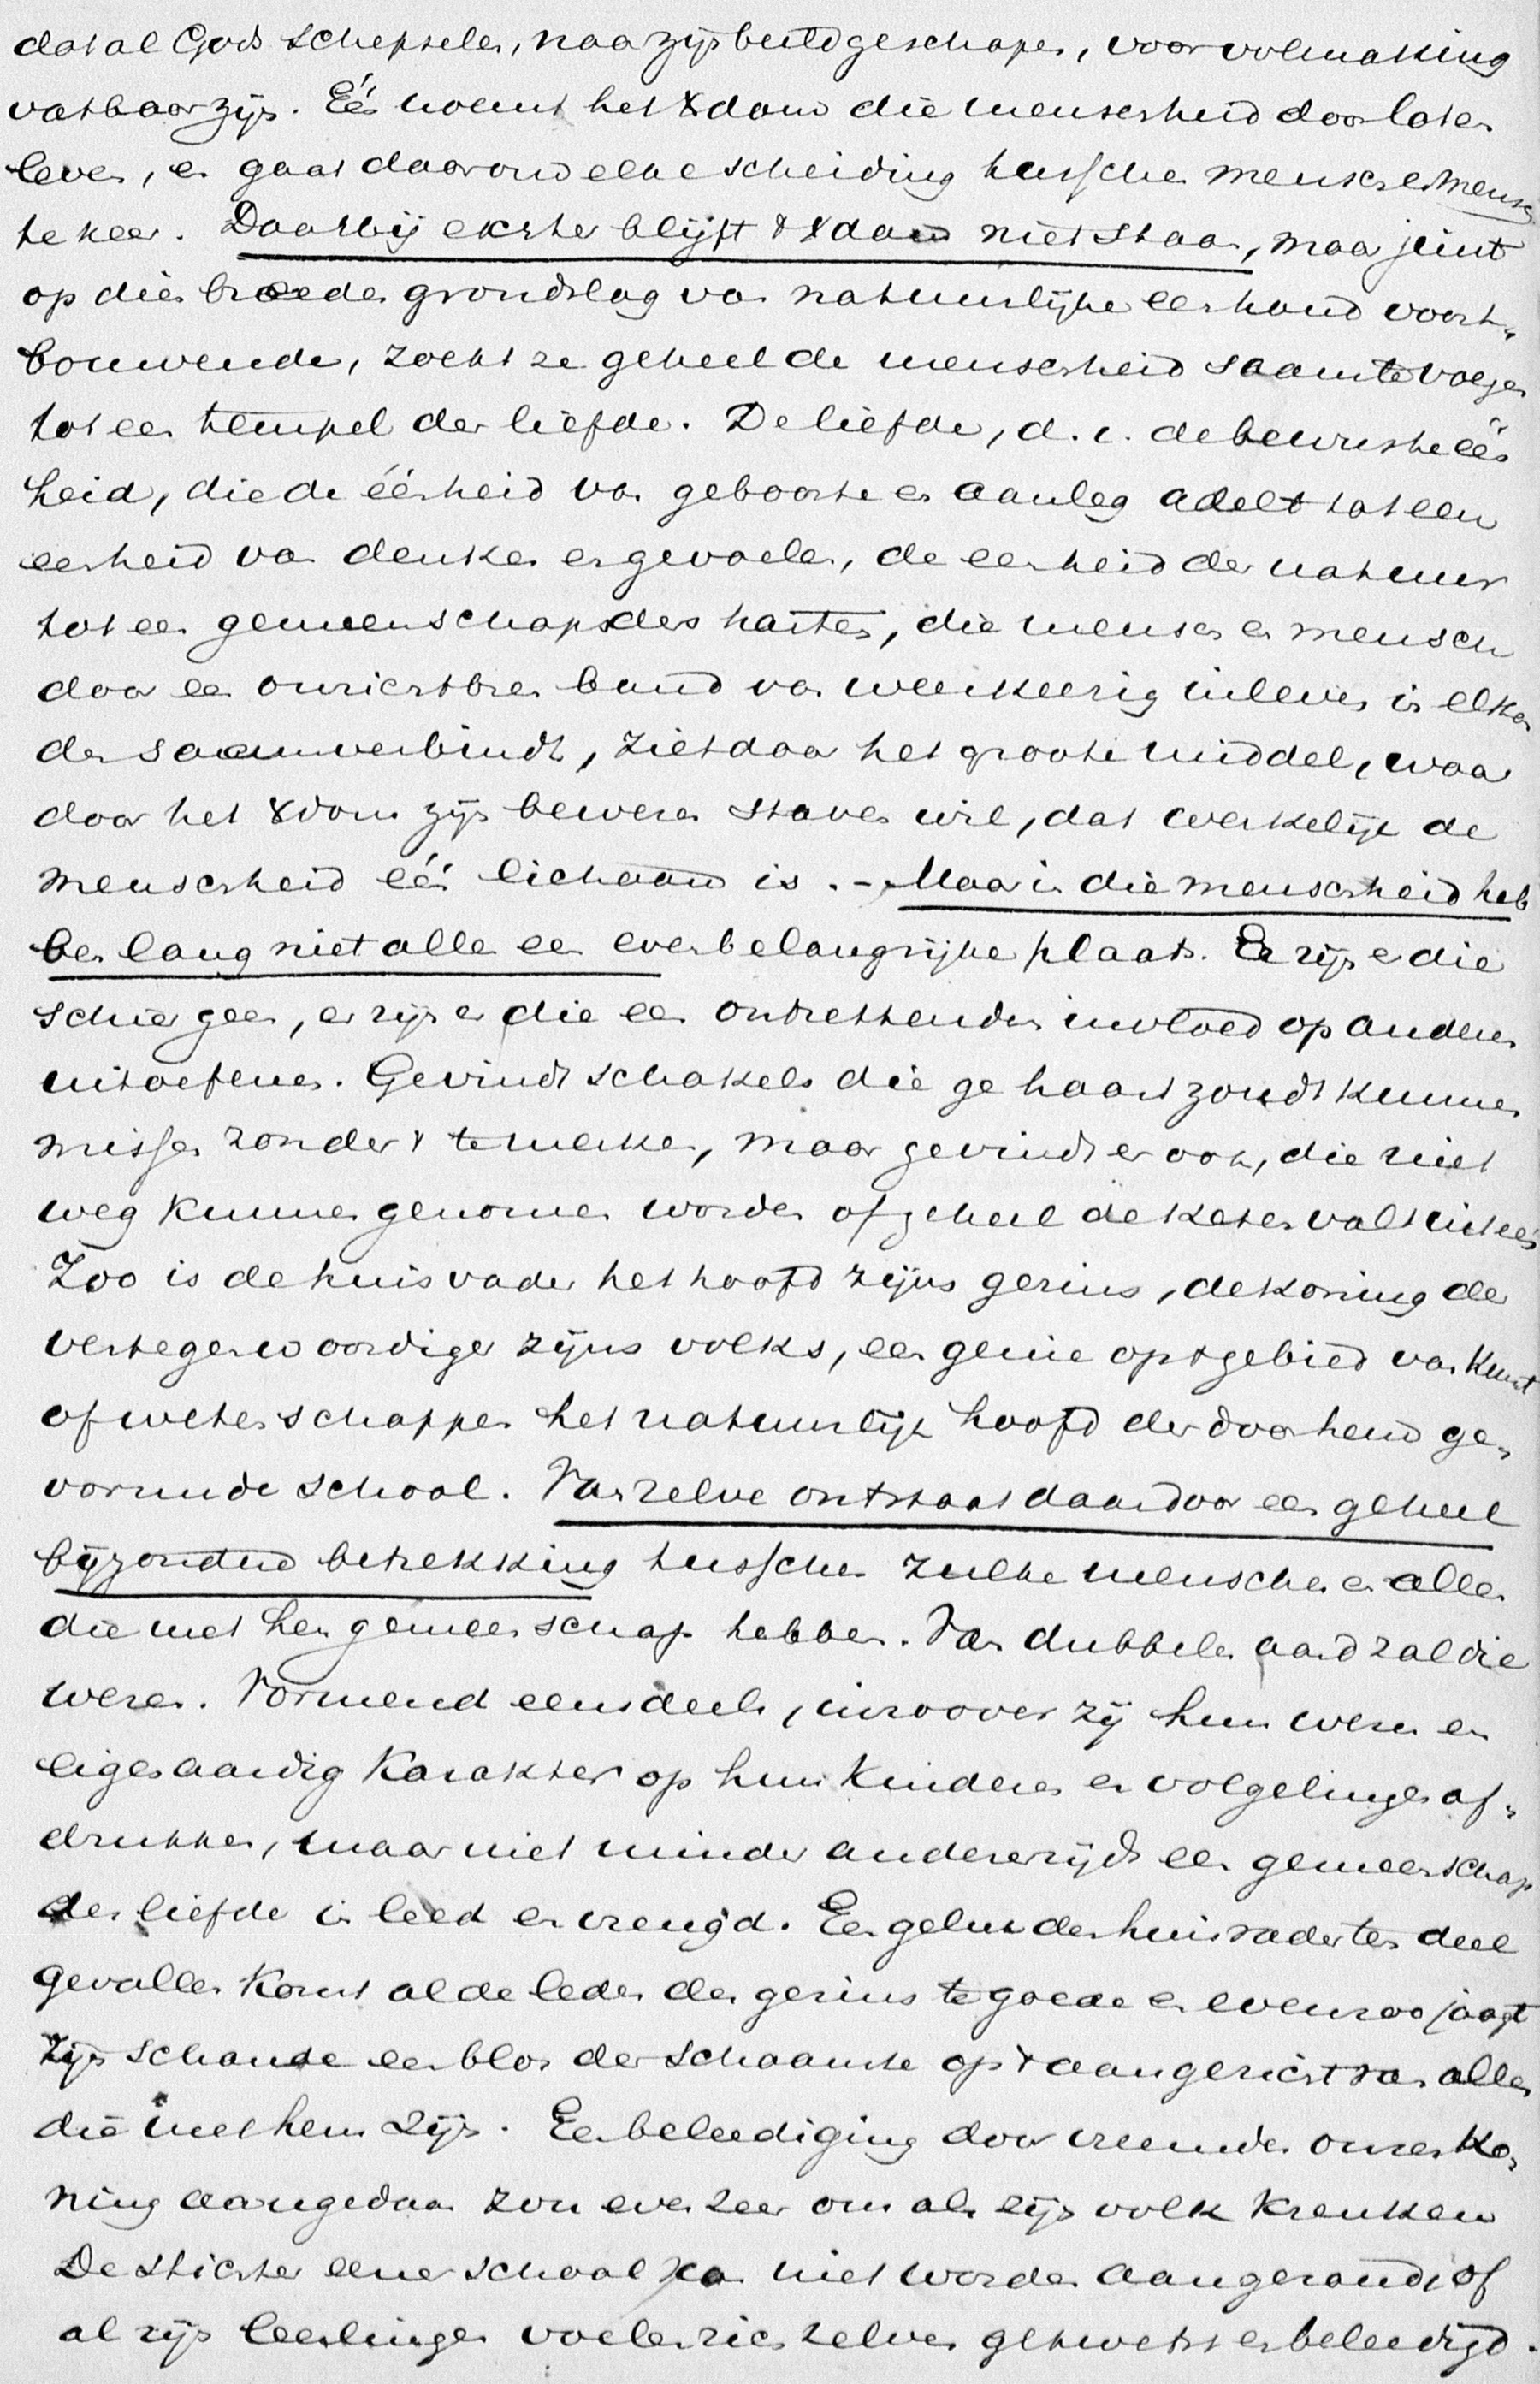 dat al Gods schepselen, naar zijn beeld geschapen, voor volmaking
vatbaar zijn. Eén noemt het Xdom die menschheid door laten
leven, en gaat daarom elke scheiding tusschen mensch en mensch
te keer. Daarbij echter blijft 't Xdom niet staan, maar juist
op dien breeden grondslag van natuurlijke eenheid voort-
bouwende, zoekt ze geheel de menschheid saam te voegen
tot een tempel der liefde. De liefde, d. i. de bewuste één
heid, die de éénheid van geboorte en aanleg adelt tot een
eenheid van denken en gevoelen, de eenheid der natuur
tot een gemeenschap des harten, die mensch en mensch
door een onzichtbren band van weerkeerig inleven in elkan
der saamverbindt, ziet daar het groote middel, waar
door het Xdom zijn beweren staven wil, dat werkelijk de
menschheid één lichaam is. - Maar in die menschheid heb
ben lang niet alle een even belangrijke plaats. Er zijn er die
schier geen, er zijn er die een ontzettenden invloed op anderen
uitoefenen. Ge vindt schakels die ge haast zoudt kunnen
missen zonder 't te merken, maar ge vindt er ook, die niet
weg kunnen genomen worden of geheel de keten valt uiteen
Zoo is de huisvader het hoofd zijns gezins, de koning de
vertegenwoordiger zijns volks, een genie op 't gebied van kunst
of wetenschappen het natuurlijk hoofd der door hem ge-
vormde school. Van zelve ontstaat daardoor een geheel
bijzondere betrekking tusschen zulke menschen en allen
die met hen gemeenschap hebben. Van dubbelen aard zal die
wezen. Vormend eensdeels, inzoover zij hun wezen en
eigenaardig karakter op hun kinderen en volgelingen af-
drukken, maar niet minder anderzijds een gemeenschap
der liefde in leed en vreugd. Een geluk den huisvader ten deel
gevallen komt al de leden des gezins te goede en evenzoo jaagt
zijn schande een blos der schaamte op 't aangezicht van allen
die met hem zijn. Een beleediging door vreemden onzen ko-
ning aangedaan zou even zeer ons als zijn volk krenken
De stichter eener school kan niet worden aangerand of
al zijn leerlingen voelen zich zelven gekwetst en beleedigd.